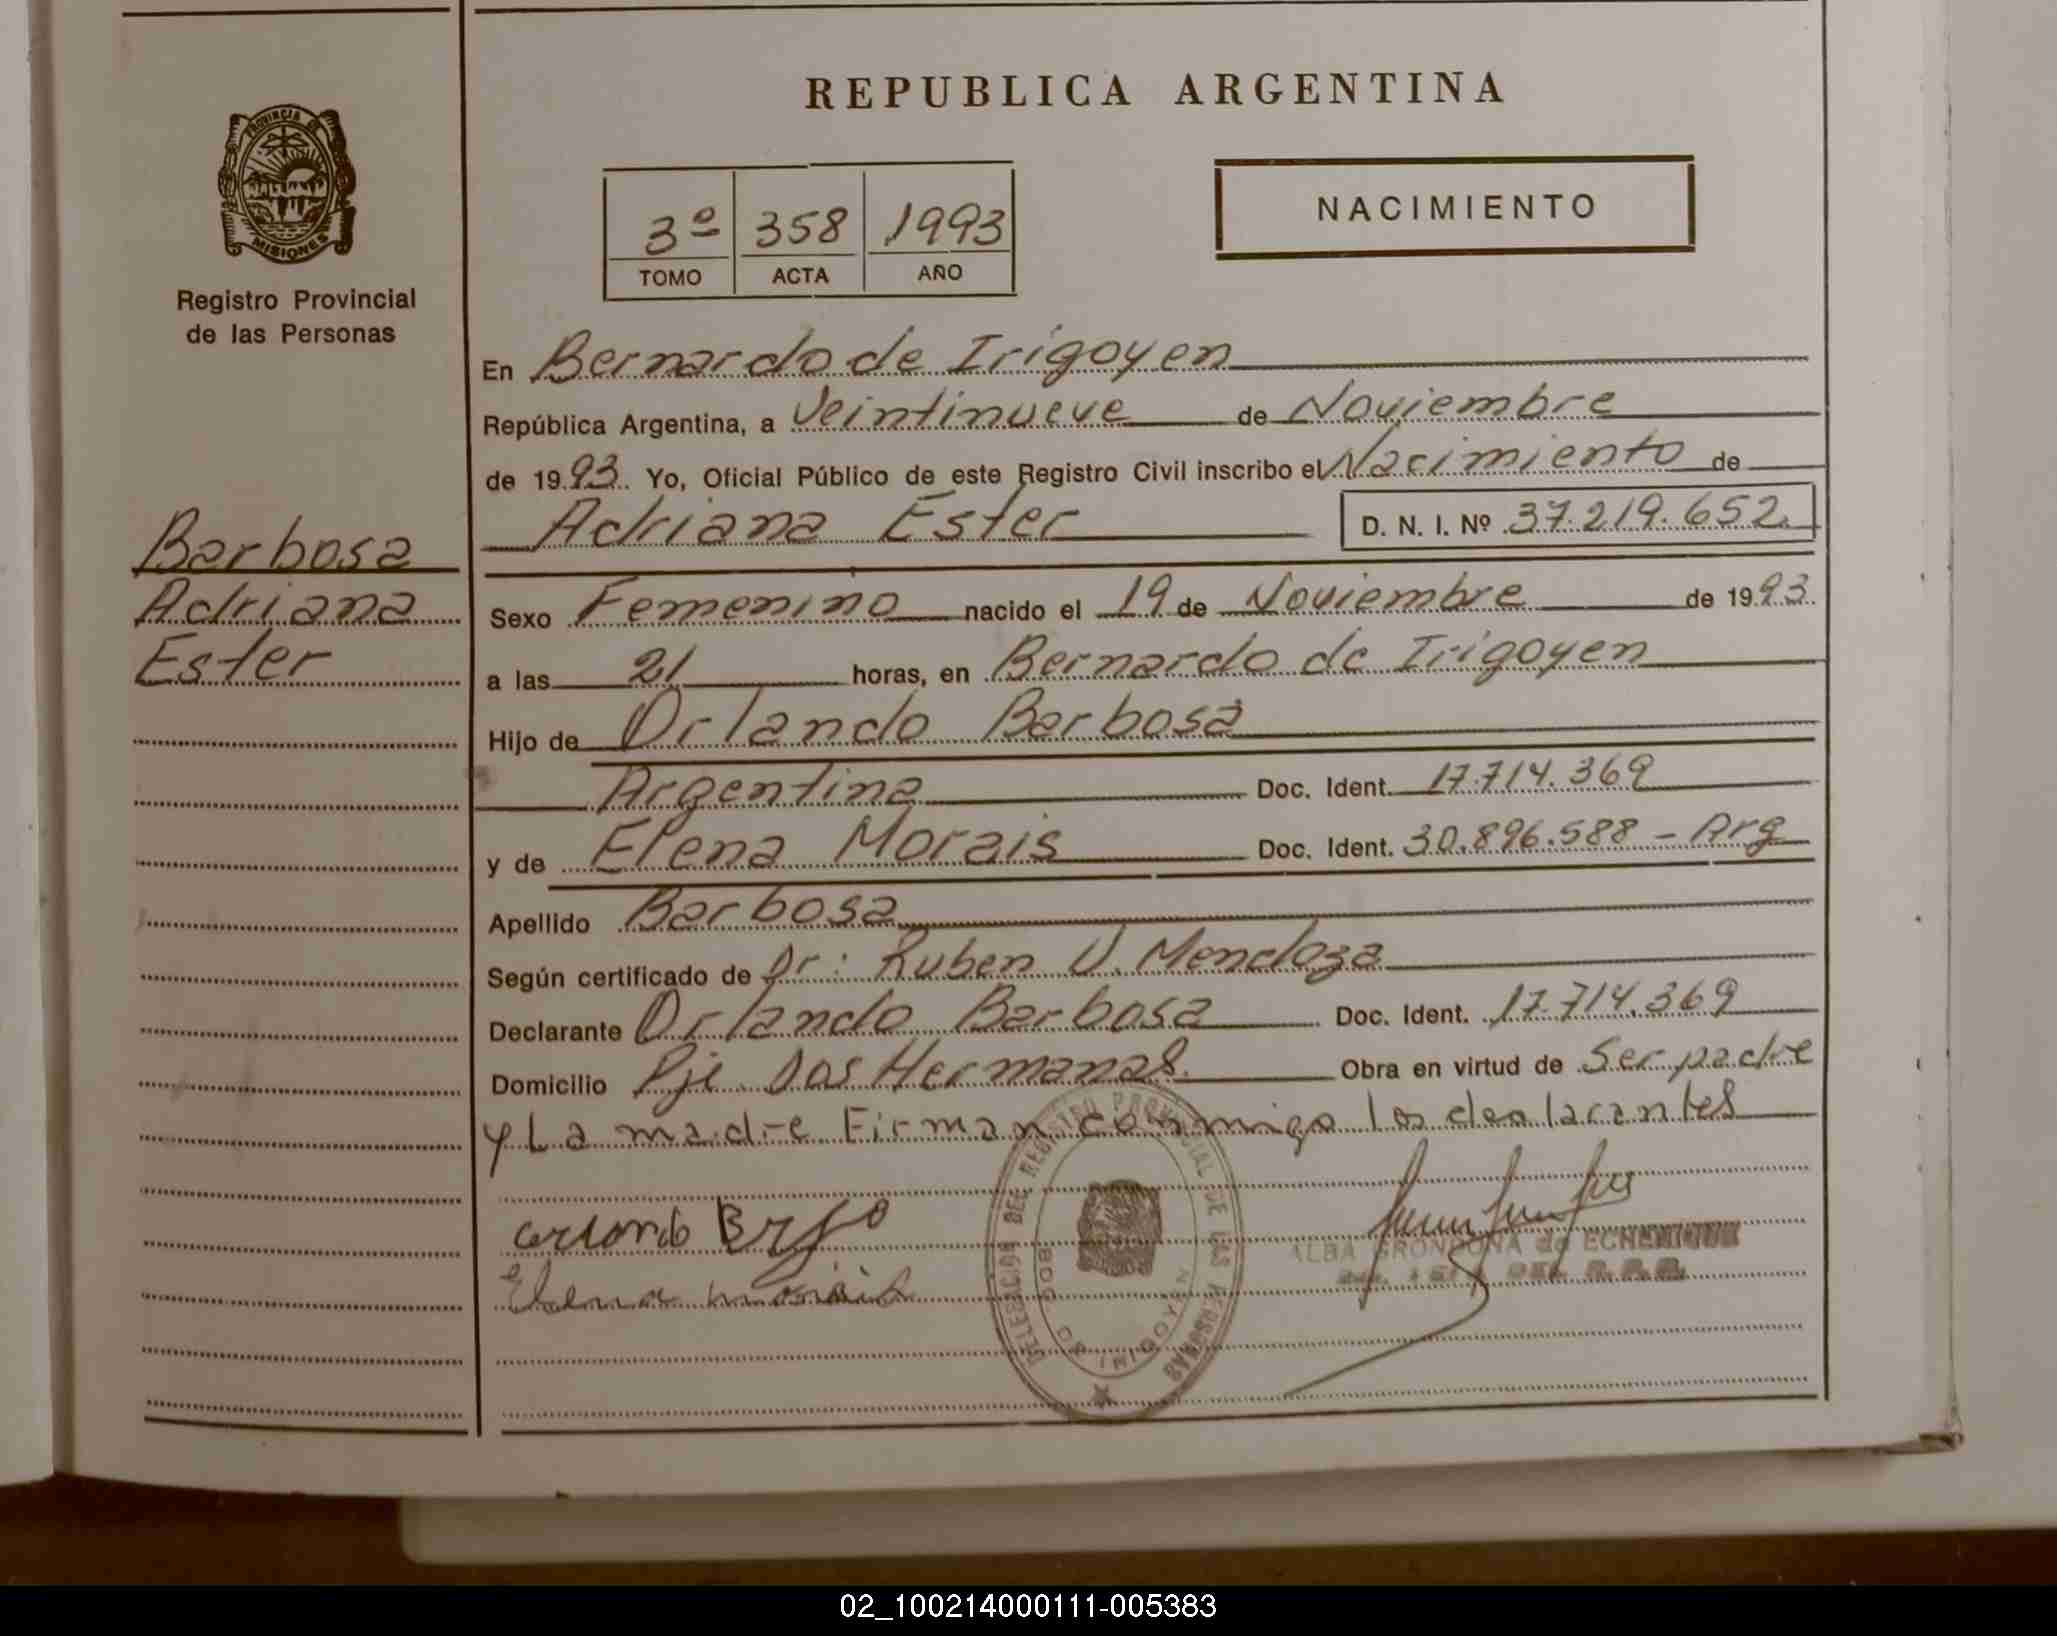 REPUBLICA ARGENTINA
PROVINCIA DE
MISIONES
Registro Provincial
de las Personas
3º 358 1993
TOMO ACTA AÑO
NACIMIENTO
En Bernardo de Irigoyen
República Argentina, a Veintinueve de Noviembre
de 1993. Yo, Oficial Público de este Registro Civil inscribo el Nacimiento de
Adriana Ester D. N. I. Nº 37.219.652.
Barbosa
Adriana
Ester
Sexo Femenino nacido el 19 de Noviembre de 1993.
a las 21 horas, en Bernardo de Irigoyen
Hijo de Orlando Barbosa
Argentina Doc. Ident. 17.714.369
y de Elena Morais Doc. Ident. 30.896.588 - Arg
Apellido Barbosa
Según certificado de Dr: Ruben U. Mendoza
Declarante Orlando Barbosa Doc. Ident. 17.714.369
Domicilio Pje Dos Hermanas. Obra en virtud de Ser padre
y La madre Firman conmigo los declarantes
DELEGACION DEL REGISTRO PROVINCIAL DE LAS PERSONAS
BDO. DE IRIGOYEN
Elena morais
ALBA GRONDONA de ECHENIQUE
02_100214000111-005383